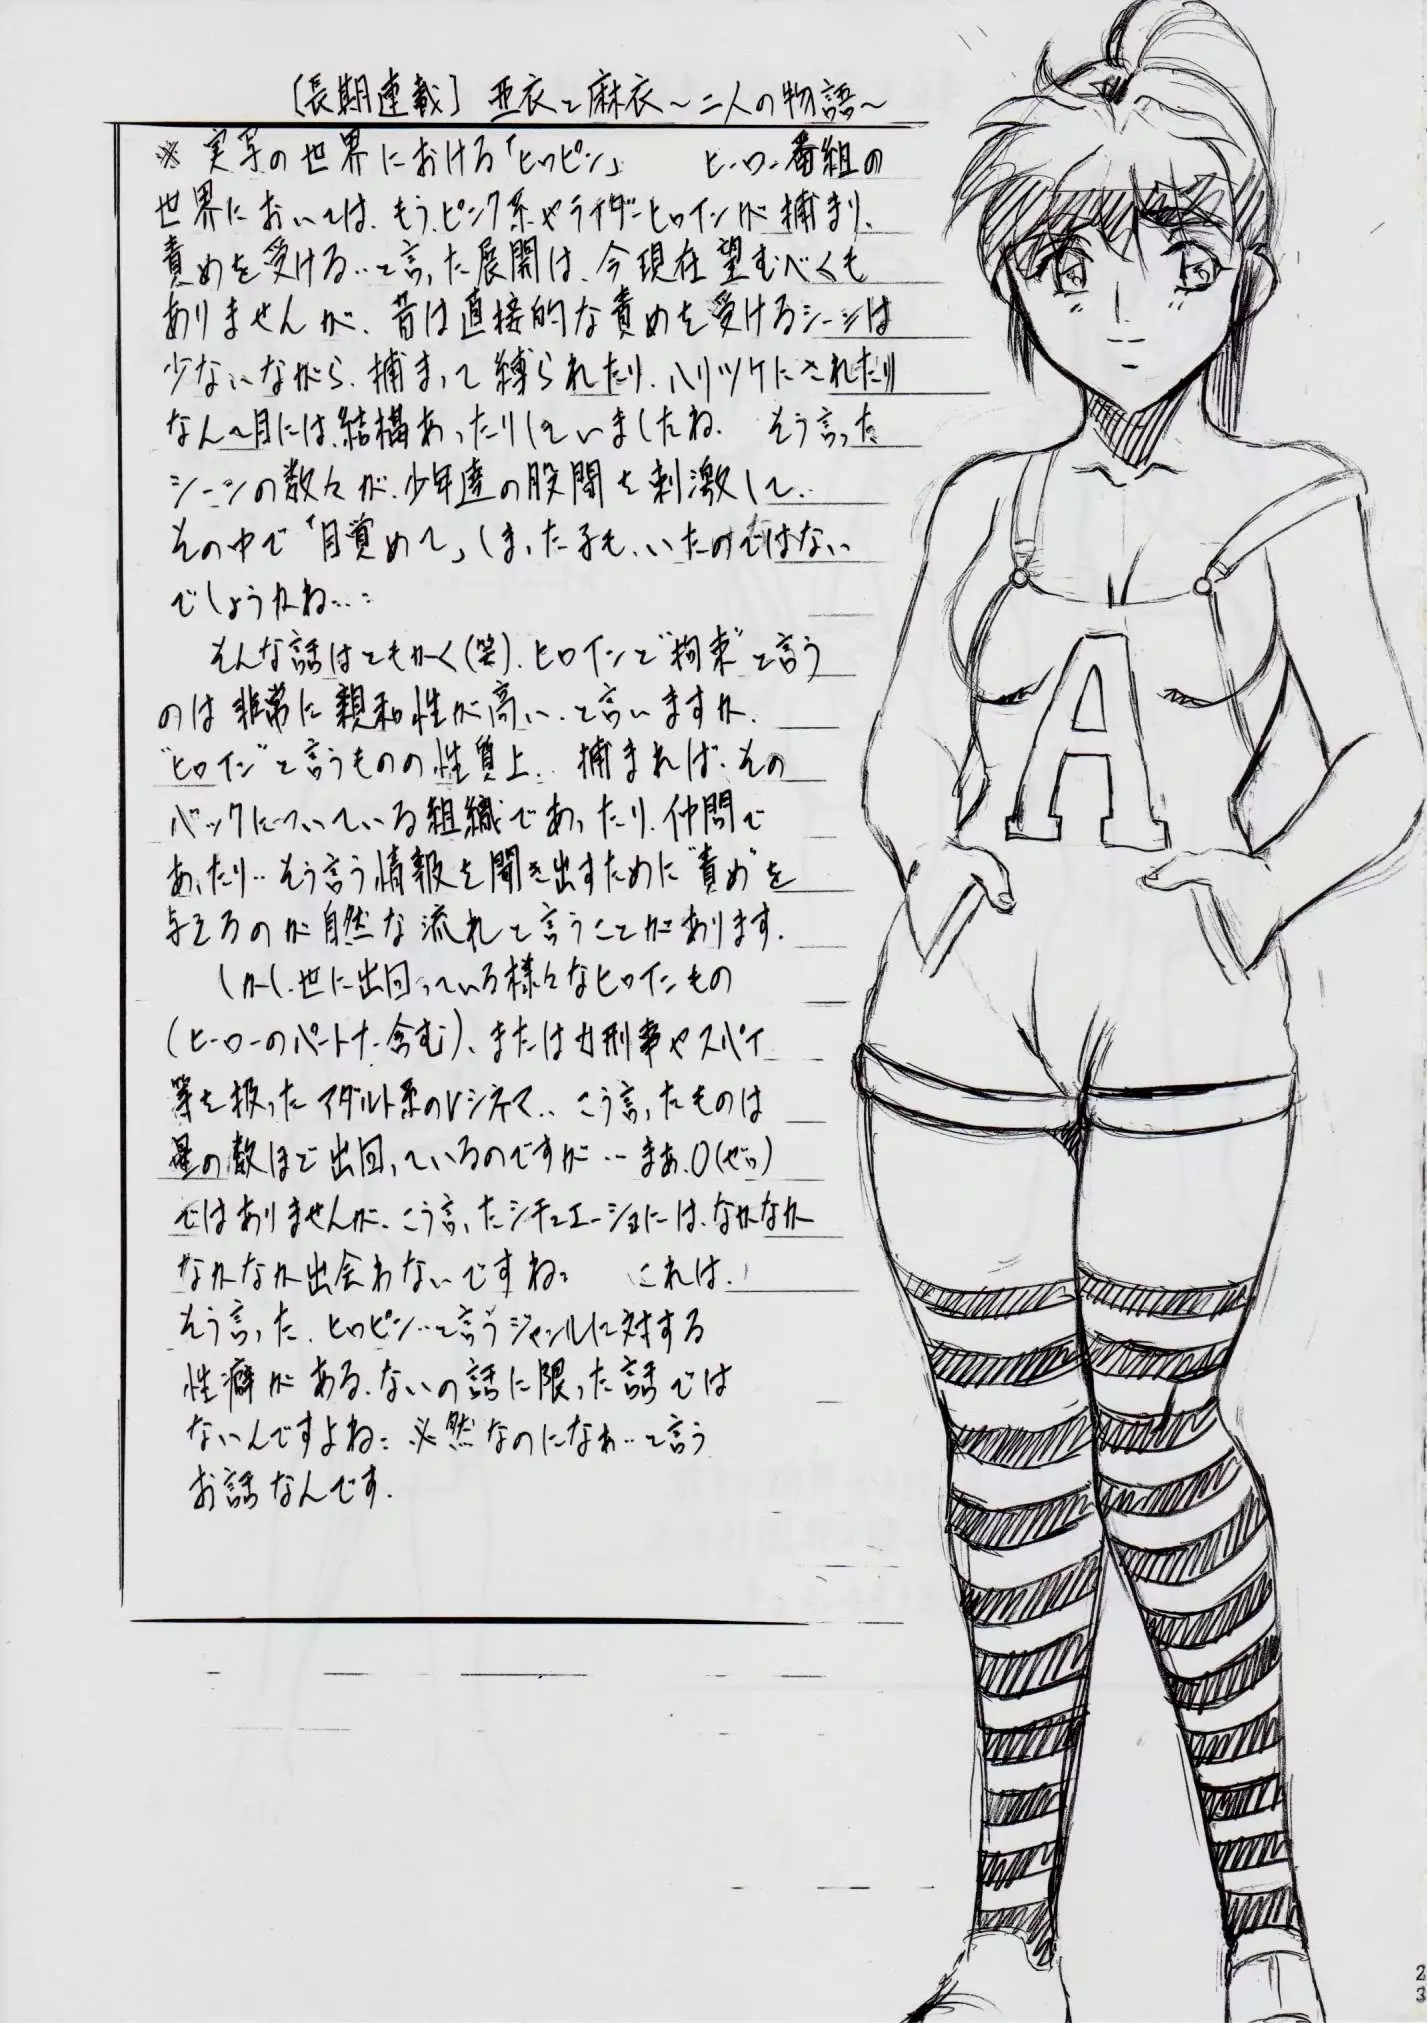 〔長期連載〕 亜衣と麻衣～二人の物語～
※ 実写の世界における「ヒロピン」 ヒーロー番組の
世界においては、もう、ピンク系やライダーヒロインが捕まり、
責めを受ける‥と言った展開は、今現在望むべくも
ありませんが、昔は直接的な責めを受けるシーンは
少ないながら、捕まって縛られたり、ハリツケにされたり
なんて目には、結構あったりしていましたね。 そう言った
シーンの数々が、少年達の股間を刺激して‥
その中で「目覚めて」しまった子も、いたのではない
でしょうかね‥:
そんな話はともかく(笑)、ヒロインと"拘束"と言う
のは非常に親和性が高い、と言いますか、
"ヒロイン"と言うものの性質上、捕まれば、その
バックについている組織であったり、仲間で
あったり‥そう言う情報を聞き出すために"責め"を
与えるのが自然な流れと言うことがあります。
しかし、世に出回っている様々なヒロインもの
(ヒーローのパートナー含む)、または女刑事やスパイ
等を扱ったアダルト系のVシネマ‥こう言ったものは
星の数ほど出回っているのですが‥まぁ、0(ゼロ)
ではありませんが、こう言ったシチュエーションには、なかなか
なかなか出会わないですね: これは、
そう言った、ヒロピン‥と言うジャンルに対する
性癖がある、ないの話に限った話では
ないんですよね: 必然なのになぁ‥と言う
お話なんです。
A
23